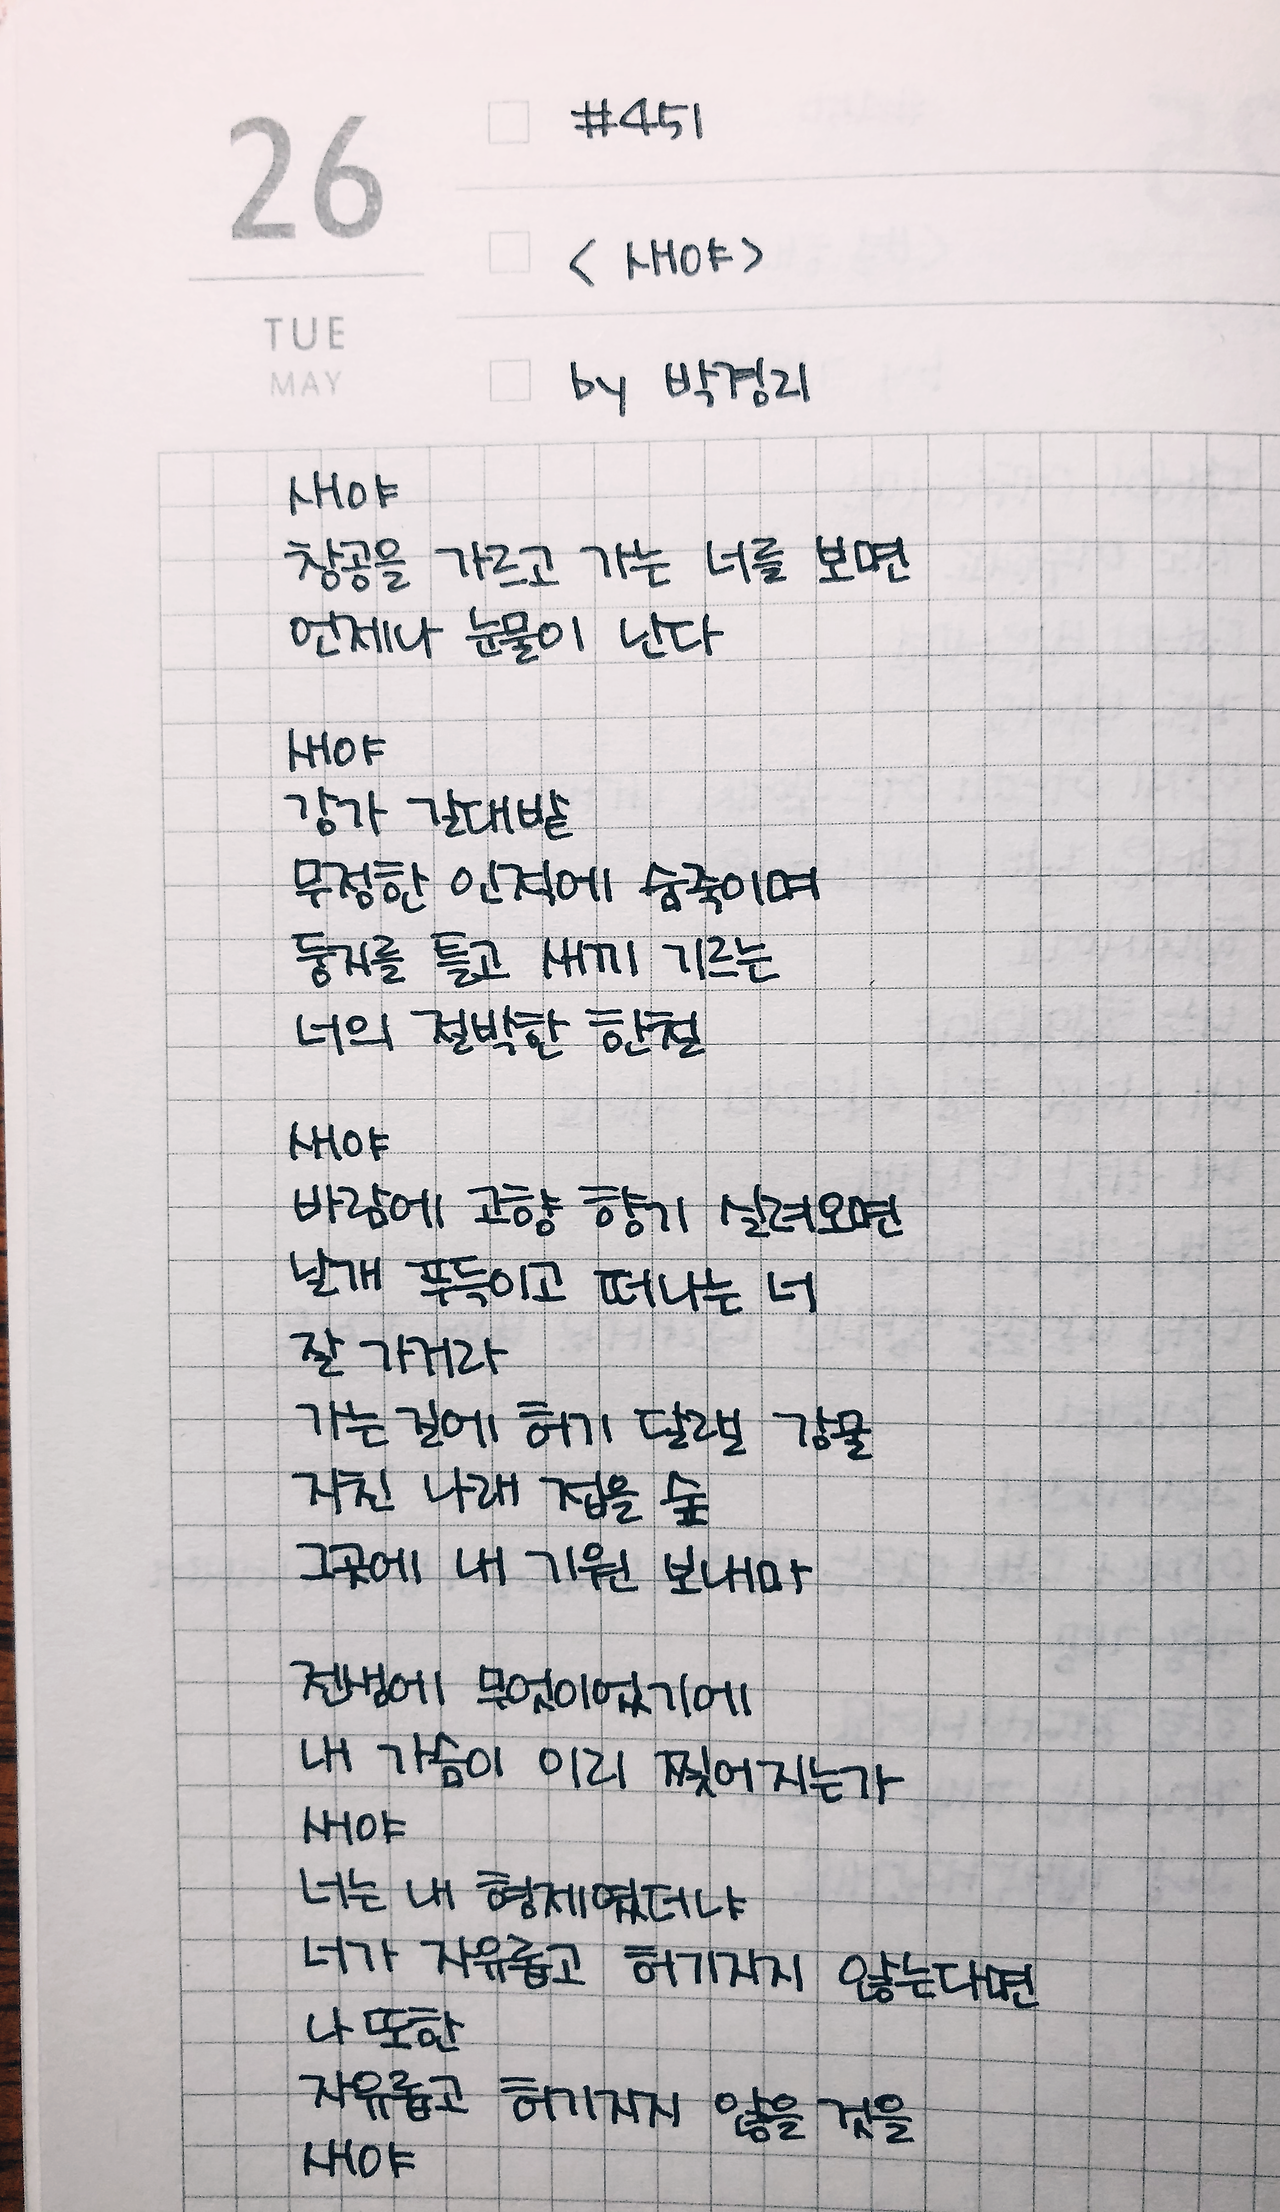 26
TUE
MAY
#451
< 새야 >
by 박경리
새야
창공을 가르고 가는 너를 보면
언제나 눈물이 난다
새야
강가 갈대밭
무정한 인적에 숨죽이며
둥지를 틀고 새끼 기르는
너의 절박한 한철
새야
바람에 고향 향기 실려오면
날개 푸득이고 떠나는 너
잘 가거라
가는 길에 허기 달랠 강물
지친 나래 접을 숲
그곳에 내 기원 보내마
전생에 무엇이었기에
내 가슴이 이리 찢어지는가
새야
너는 내 형제였더냐
너가 자유롭고 허기지지 않는다면
나 또한
자유롭고 허기지지 않을 것을
새야